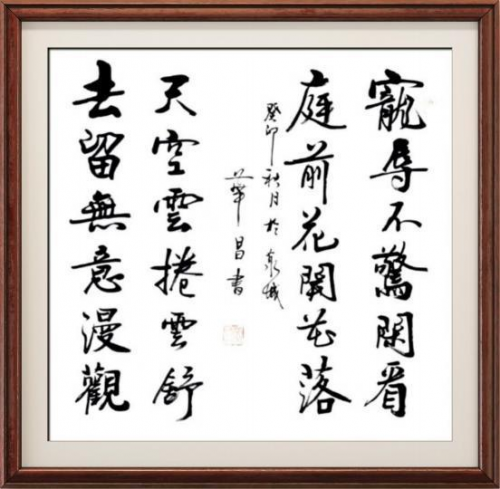 寵辱不驚閑看
庭前花開花落
去留無意漫觀
天空雲捲雲舒
癸卯秋月於泉城
華昌書